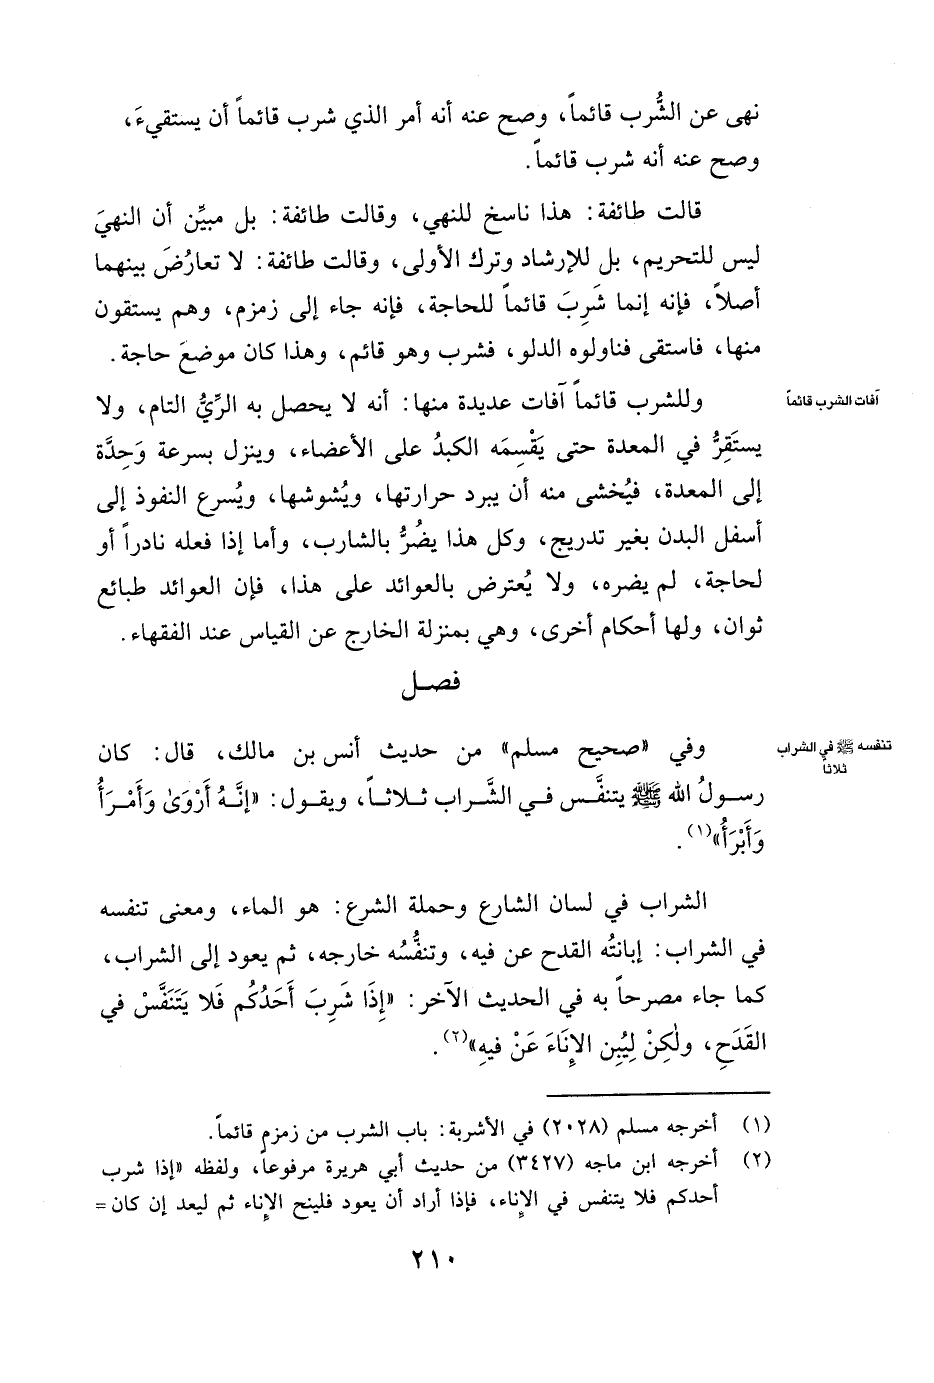 نهى عن الشُّرب قائماً، وصح عنه أنه أمر الذي شرب قائماً أن يستقيءَ،
وصح عنه أنه شرب قائماً.
قالت طائفة: هذا ناسخ للنهي، وقالت طائفة: بل مبيِّن أن النهيَ
ليس للتحريم، بل للإرشاد وترك الأولى، وقالت طائفة: لا تعارُضَ بينهما
أصلاً، فإنه إنما شَرِبَ قائماً للحاجة، فإنه جاء إلى زمزم، وهم يستقون
منها، فاستقى فناولوه الدلو، فشرب وهو قائم، وهذا كان موضعَ حاجة.
آفات الشرب قائماً
وللشرب قائماً آفات عديدة منها: أنه لا يحصل به الرِّيُّ التام، ولا
يستَقِرُّ في المعدة حتى يَقْسِمَه الكبدُ على الأعضاء، وينزل بسرعة وَحِدَّة
إلى المعدة، فيُخشى منه أن يبرد حرارتها، ويُشوشها، ويُسرع النفوذ إلى
أسفل البدن بغير تدريج، وكل هذا يضُرُّ بالشارب، وأما إذا فعله نادراً أو
لحاجة، لم يضره، ولا يُعترض بالعوائد على هذا، فإن العوائد طبائع
ثوان، ولها أحكام أخرى، وهي بمنزلة الخارج عن القياس عند الفقهاء.
فصل
تنفسه ﷺ في الشراب
ثلاثاً
وفي «صحيح مسلم» من حديث أنس بن مالك، قال: كان
رسولُ الله ﷺ يتنفَّس في الشَّراب ثلاثاً، ويقول: «إنَّهُ أَرْوَىٰ وَأَمْرَأُ
وَأَبْرَأُ»(١).
الشراب في لسان الشارع وحملة الشرع: هو الماء، ومعنى تنفسه
في الشراب: إبانتُه القدح عن فيه، وتنفُّسُه خارجه، ثم يعود إلى الشراب،
كما جاء مصرحاً به في الحديث الآخر: «إِذَا شَرِبَ أَحَدُكُم فَلا يَتَنَفَّسْ في
القَدَحِ، ولٰكِنْ لِيُبِن الإِنَاءَ عَنْ فيهِ»(٢).
(١) أخرجه مسلم (٢٠٢٨) في الأشربة: باب الشرب من زمزم قائماً.
(٢) أخرجه ابن ماجه (٣٤٢٧) من حديث أبي هريرة مرفوعاً، ولفظه «إذا شرب
أحدكم فلا يتنفس في الإناء، فإذا أراد أن يعود فلينح الإناء ثم ليعد إن كان =
٢١٠